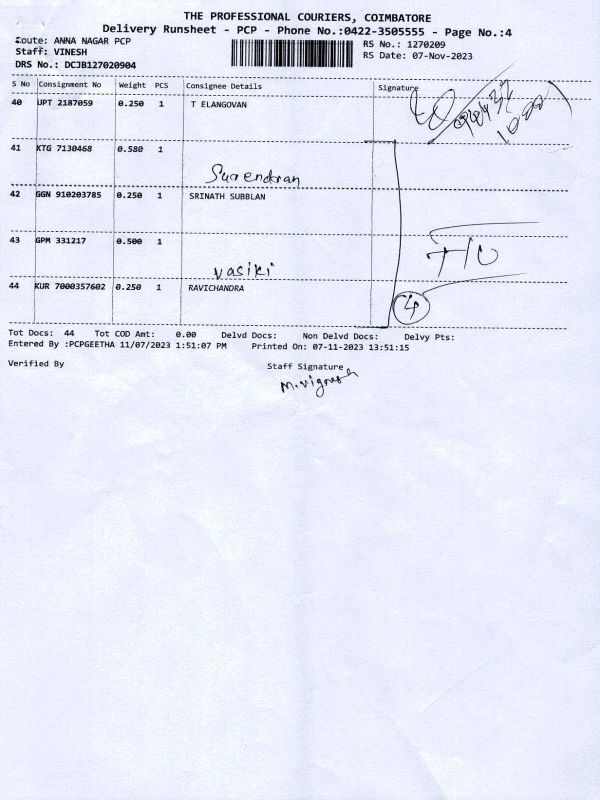 THE PROFESSIONAL COURIERS, COIMBATORE
Delivery Runsheet - PCP - Phone No.:0422-3505555 - Page No.:4
Route: ANNA NAGAR PCP
Staff: VINESH
DRS No.: DCJB127020904
RS No.: 1270209
RS Date: 07-Nov-2023
S No Consignment No Weight PCS Consignee Details Signature
40 UPT 2187059 0.250 1 T ELANGOVAN
41 KTG 7130468 0.580 1
Surendran
42 GGN 910203785 0.250 1 SRINATH SUBBLAN
43 GPM 331217 0.500 1
Vasiki
T/U
44 KUR 7000357602 0.250 1 RAVICHANDRA
4
Tot Docs: 44 Tot COD Amt: 0.00 Delvd Docs: Non Delvd Docs: Delvy Pts:
Entered By :PCPGEETHA 11/07/2023 1:51:07 PM Printed On: 07-11-2023 13:51:15
Verified By Staff Signature
M.Vignesh